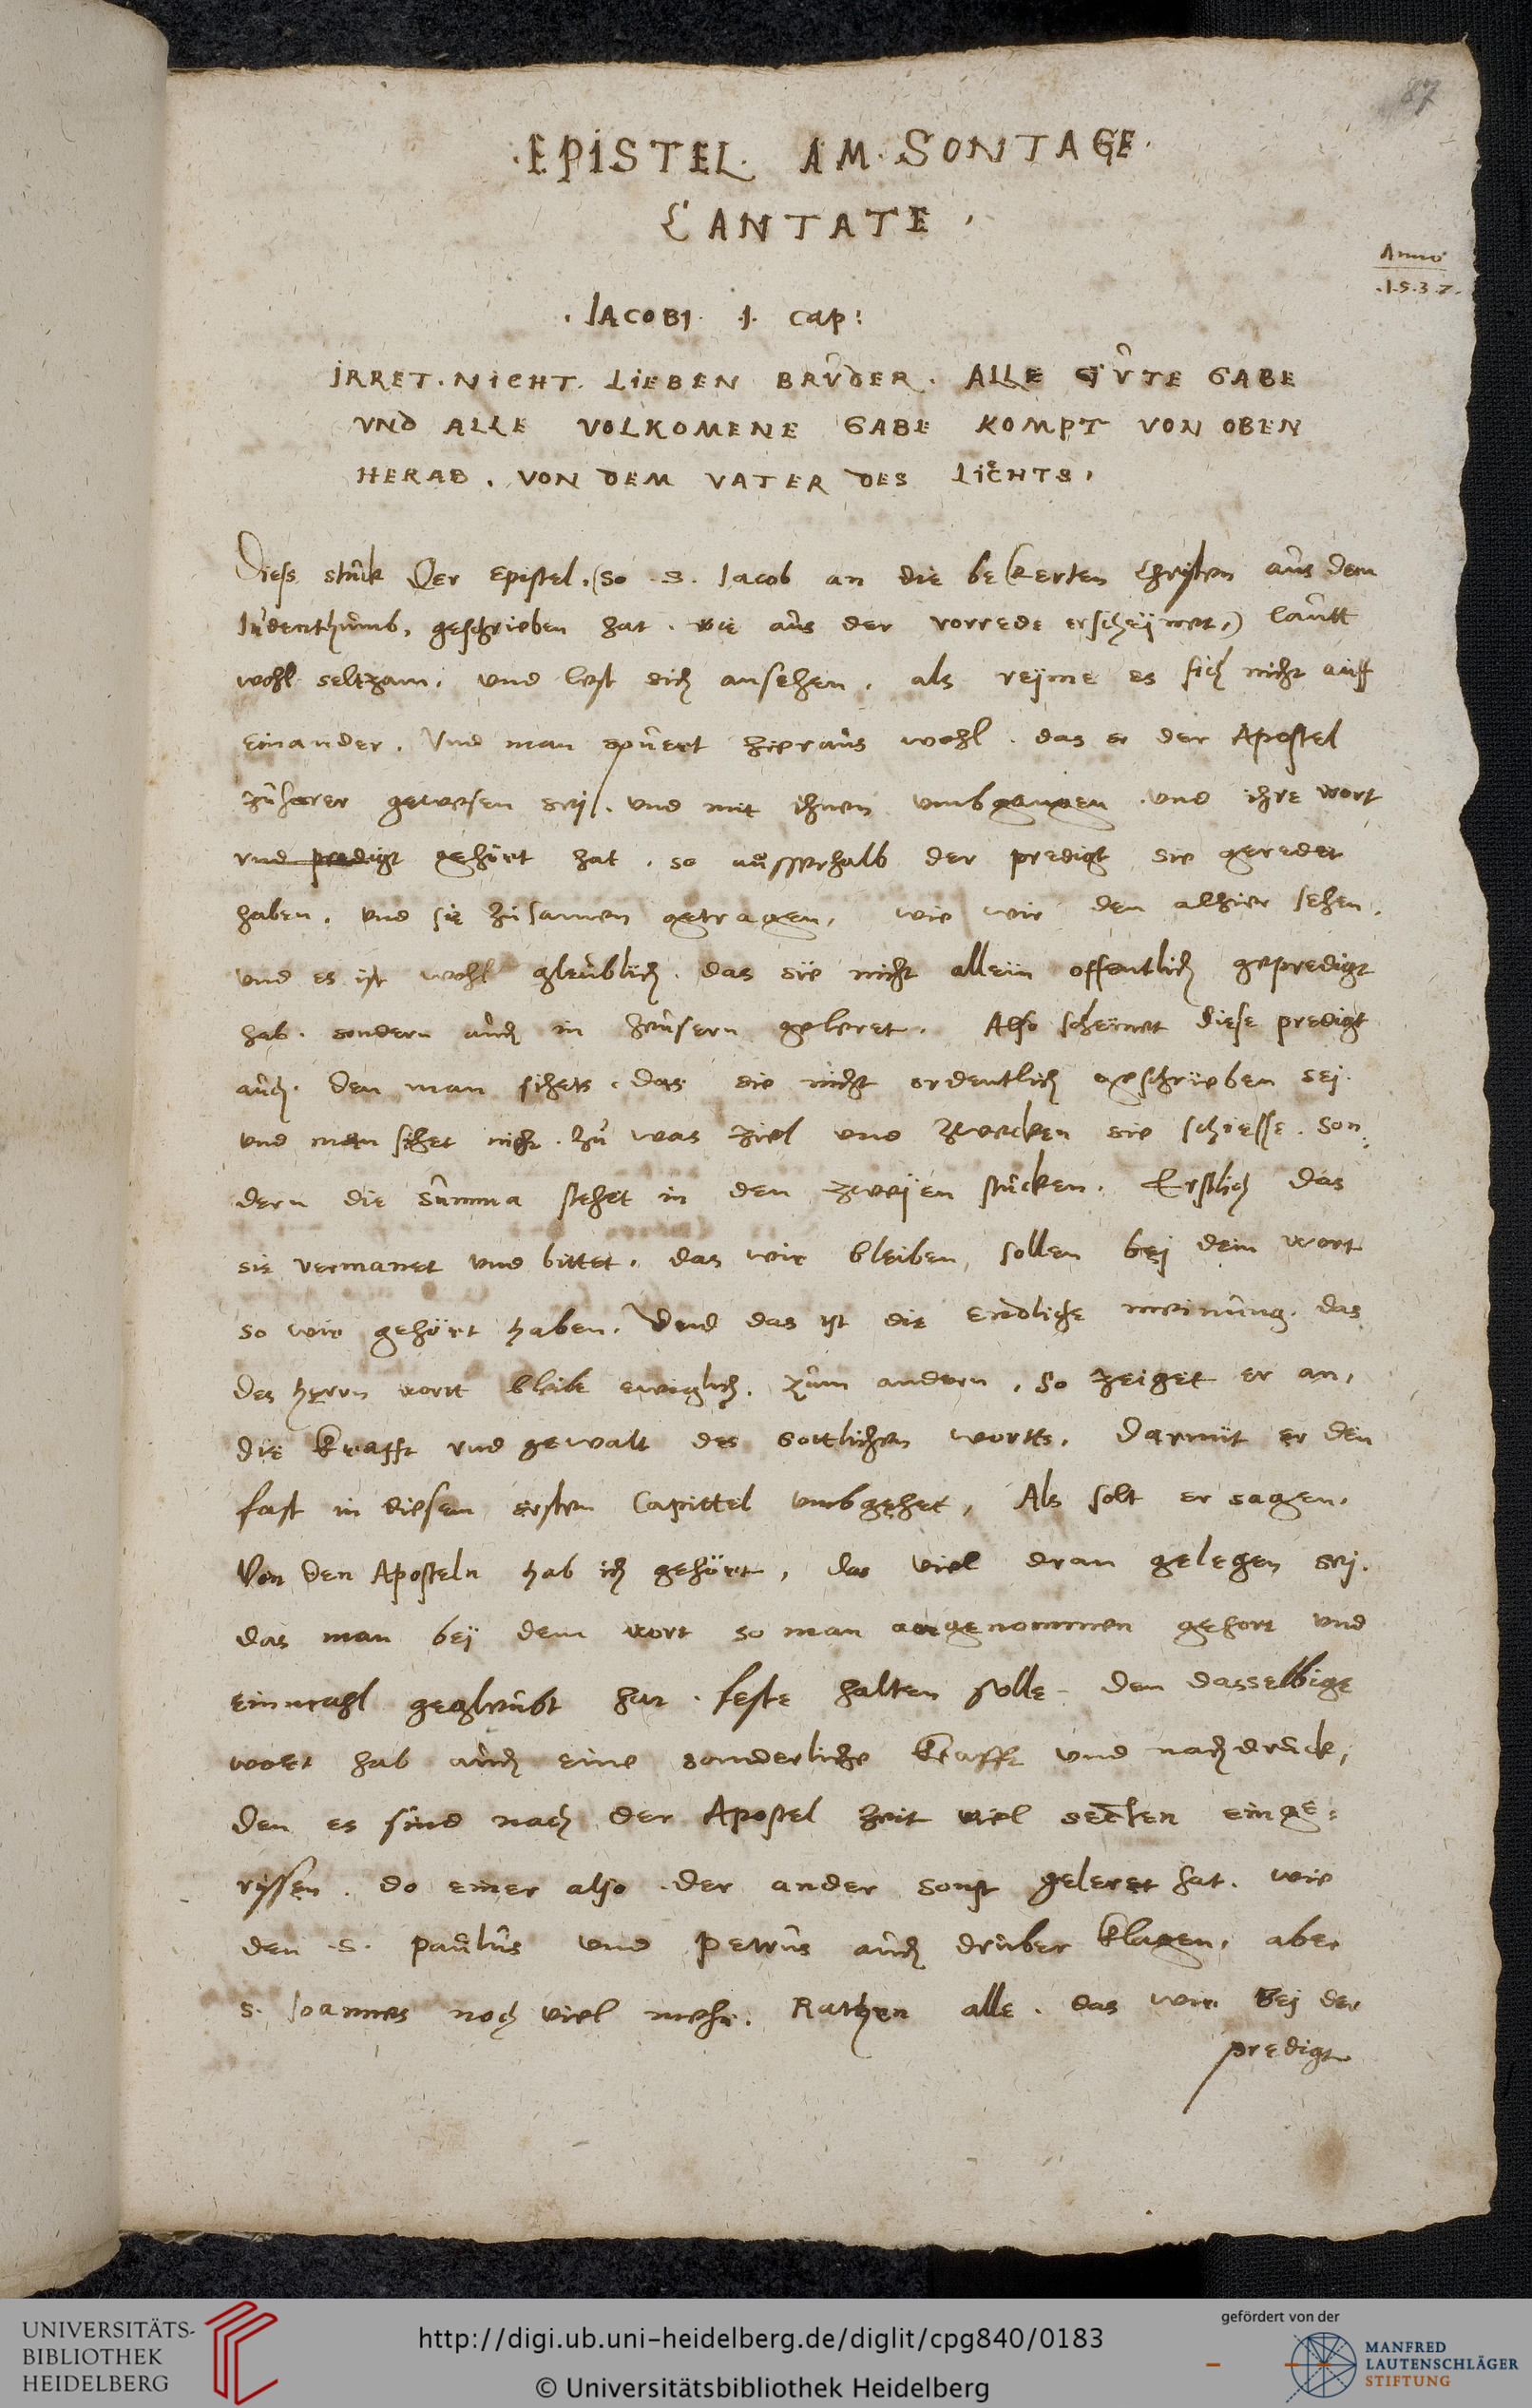 87
.EPISTEL. AM. SONTAGE.
CANTATE.
Anno
.1.5.3.7.
.IACOBI. .1. cap:
IRRET. NICHT. LIEBEN BRUDER. ALLE GUTE GABE
VND ALLE VOLKOMENE GABE KOMPT VON OBEN
HERAB. VON DEM VATER DES LIECHTS.
Diess stuck Der Epistel, (so .S. Iacob an die bekerten Christen aus dem
Iudenthumb, geschrieben hat. wie aus der vorrede erscheijnet,) lautt
wohl seltzam, vnd lest sich ansehen, als reijme es sich nicht auff
einander. Vnd man spuret hieraus wohl. das er der Apostel
zuhorer gewesen seij. vnd mit ihnen vmbgangen .vnd ihre wort
vnd predigt gehört hat. so ausserhalb der predigt sie geredet
haben. vnd sie zusamen getragen, wie wir den alhier sehen.
vnd es ist wohl gleublich. das sie nicht allein offentlich gepredigt
hab. sondern auch in heusern geleret. Also scheinet diese predigt
auch. den man sihets. das sie nicht ordentlich geschrieben sej.
vnd man sihet nicht. zu was ziel vnd zwecken sie schiesse. Son=
dern die summa stehet in den zweijen stucken. Erstlich das
sie vermanet vnd bittet. das wir bleiben, sollen bej dem wort
so wir gehört haben. Vnd das ist die endliche meinung. das
des herrn wortt bleibe ewiglich. zum andern, so zeiget er an,
die krafft vnd gewalt des gottlichen wortts. Darmit er den
fast in diesem ersten Capittel vmbgehet, Als solt er sagen.
Von den Aposteln hab ich gehört, das viel dran gelegen sej.
das man beij dem wort so man angenommen gehort vnd
einmahl gegleubt hat. feste halten solle. den dasselbige
wort hab auch eine sonderliche krafft vnd nachdruck,
den es sind nach der Apostel zeit viel secten einge=
rissen. do einer also .der ander sonst geleret hat. wie
den .S. paulus vnd Petrus auch druber klagen. aber
S. Joannes noch viel mehr. Rathen alle. das wir bej der
predigt
UNIVERSITÄTS-
BIBLIOTHEK
HEIDELBERG
http://digi.ub.uni-heidelberg.de/diglit/cpg840/0183
© Universitätsbibliothek Heidelberg
gefördert von der
MANFRED
LAUTENSCHLÄGER
STIFTUNG